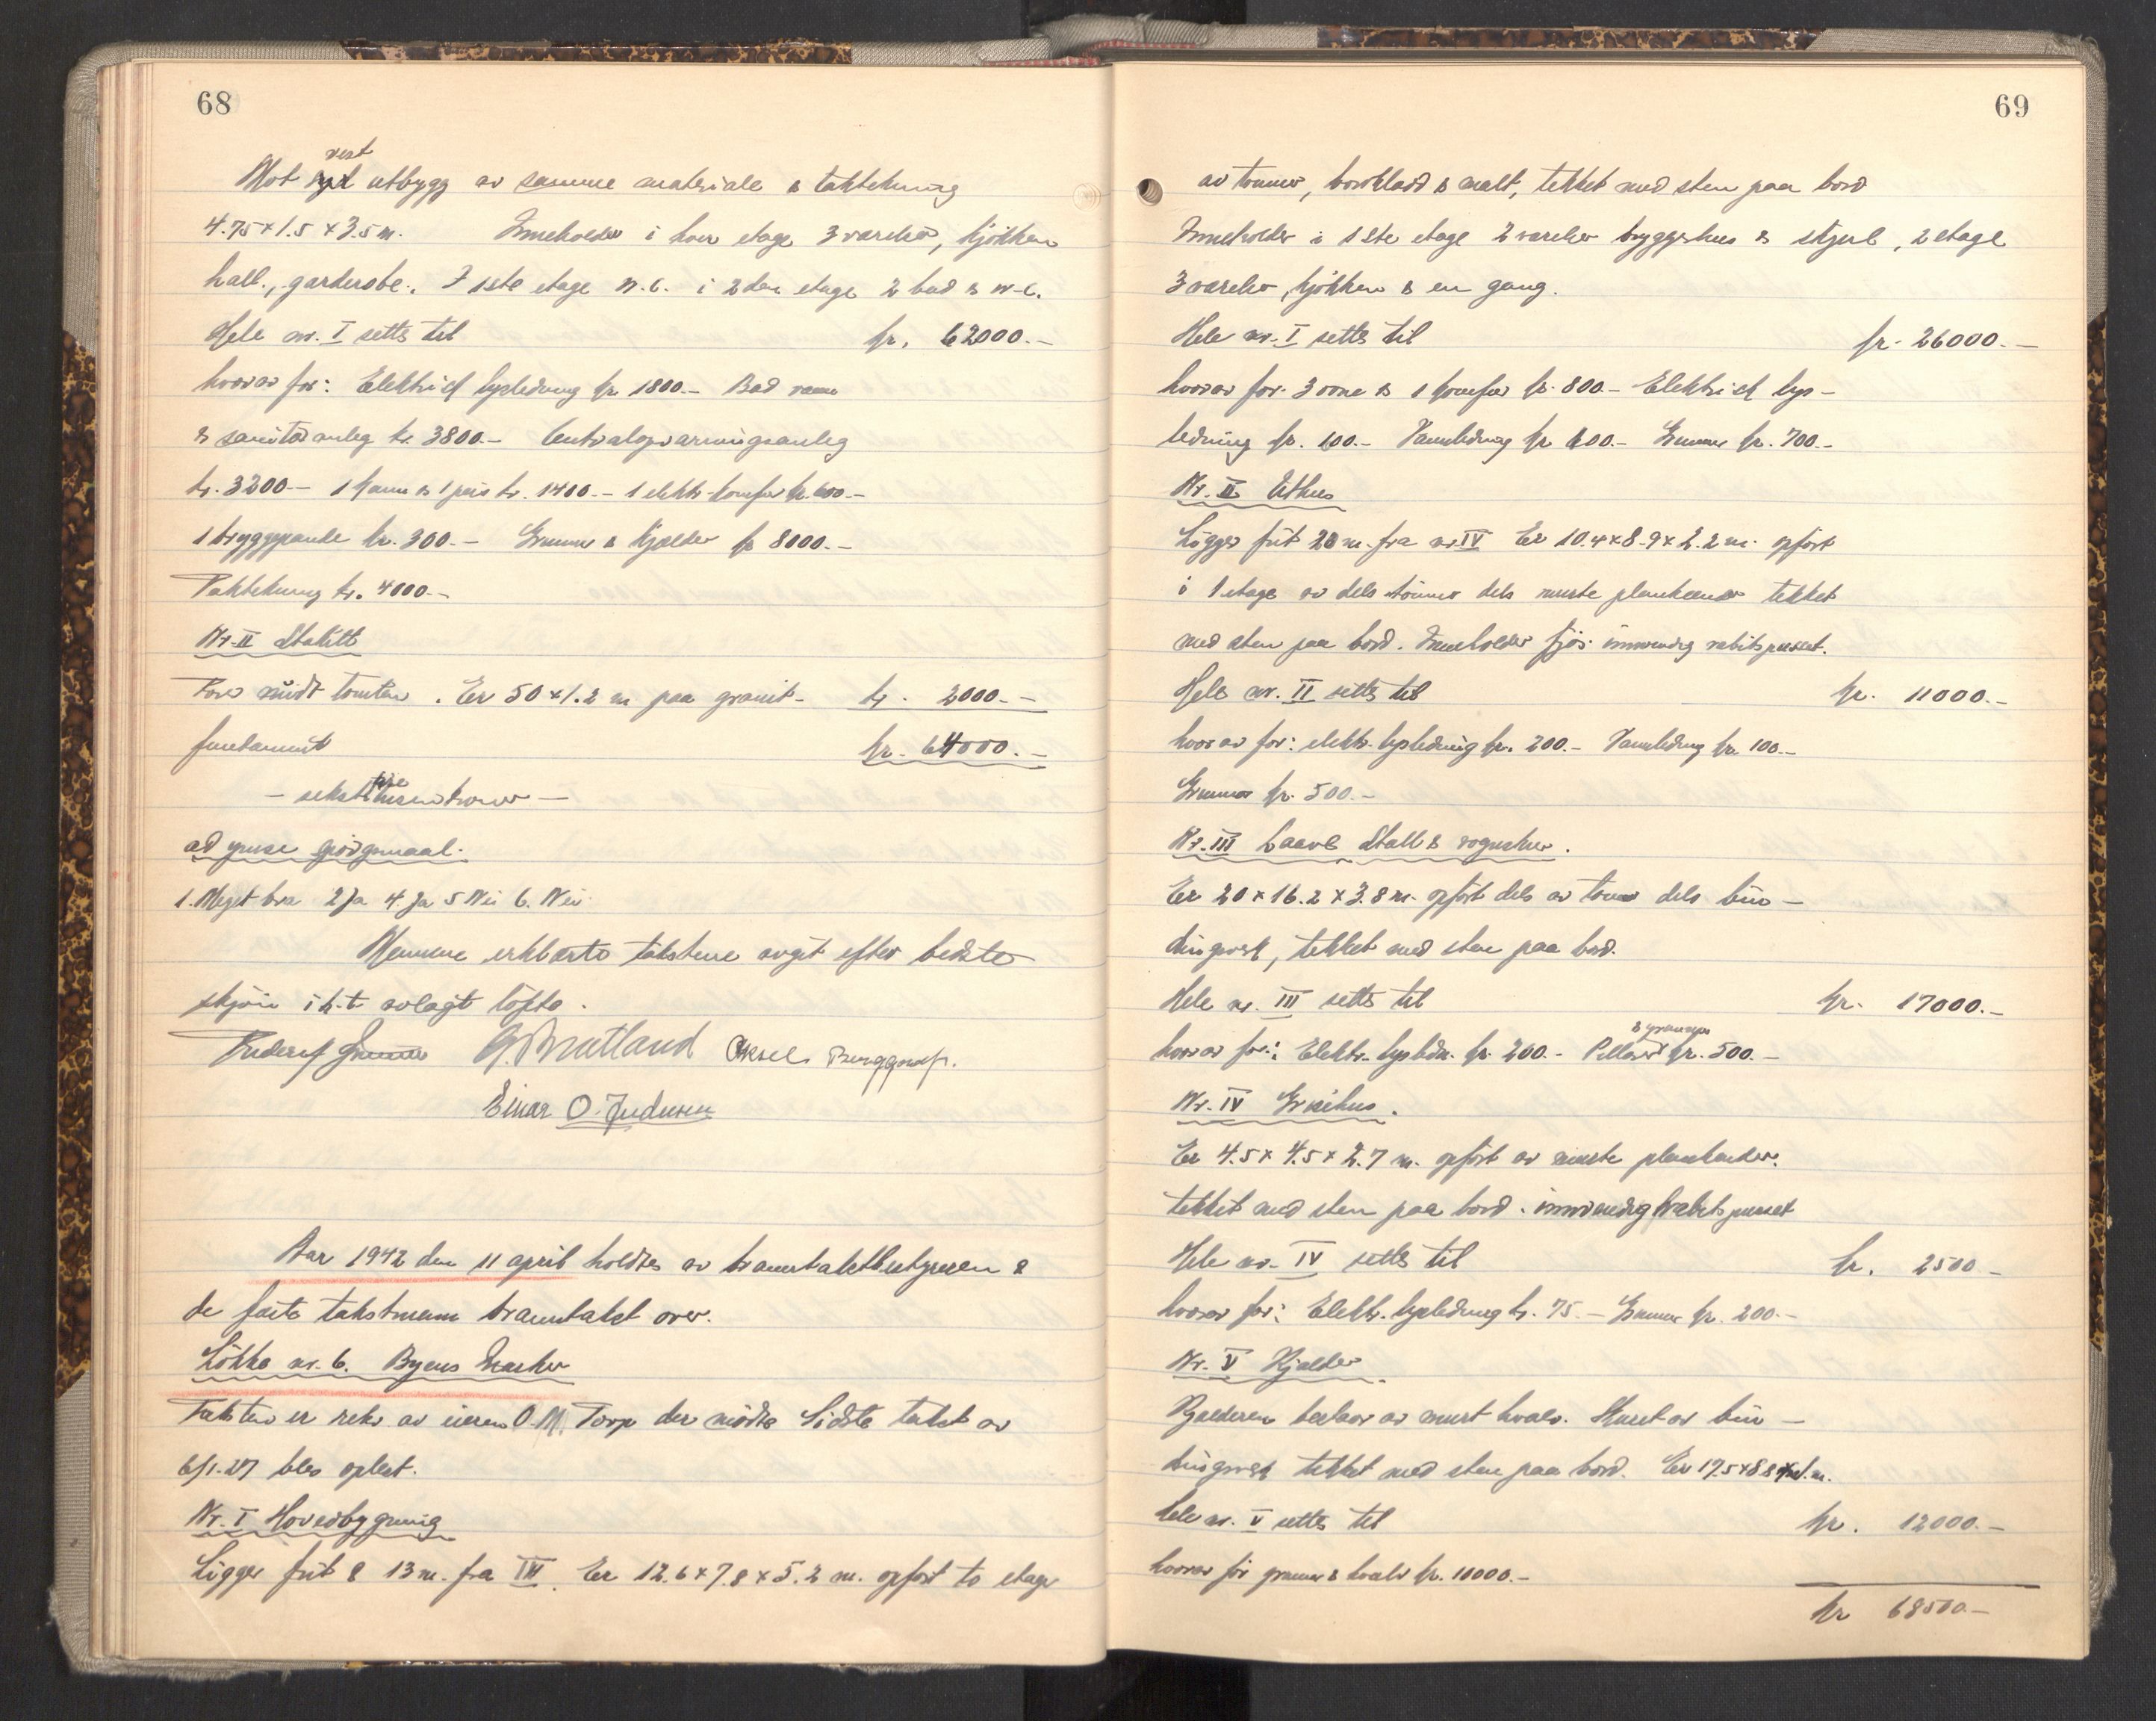 68
vest
Mot syd utbygg av samme materiale & taktekning
4.75 x 1.5 x 3.5 m. Inneholder i hver etage 3 værelser, kjøkken
hall, garderobe. I 1ste etage W.C. i 2den etage 2 bad & W.C.
Hele nr. I settes til kr. 62000.-
hvorav for: Elektrisk lysledning kr 1800.- Bad
& sanitæranleg kr. 3800.- Centralopvarmingsanleg
kr. 3200.- 1 kamin & 1 peis kr. 1400.- 1 elektr. komfur kr. 600.-
1 bryggepande kr. 300.- Grunmur & kjelder kr 8000.-
Taktekning kr. 4000.-
Nr. II Stakitt
rundt tomten. Er 50 x 1.2 m paa granit- kr. 2000.-
fundament kr. 64000.-
- sekstifire tusen kroner -
ad spørgsmaal.
1. Meget bra 2 Ja 4. Ja 5 Nei 6. Nei
Mennene erklærte taksten avgit efter bedste
skjøn i h.t. avlagt løfte.
G. Bratland Aksel Berggraf.
Einar O.
Aar 1942 den 11 april holdtes av branntakstbestyreren &
de faste takstmenn branntakst over.
Løkke nr. 6. Byens Marker
Taksten er rekv. av eieren O. M. Torp der mødte Sidste takst av
6/1.27 blev oplest.
Nr. I Hovedbygning
Ligger frit & 13 m. fra III. Er 12.6 x 7.8 x 5.2 m. opført to etager
69
av tømmer, bordkledd & malt, tekket med sten paa bord
Inneholder i 1ste etage 2 værelser bryggerhus & skjul, 2 etage
3 værelser, kjøkken & en gang.
Hele nr. I settes til kr. 26000.-
hvorav for: 3 ovne & 1 komfur kr. 800.- Elektrisk lys-
ledning kr. 600.- Vannledning kr 600.- Grunmur kr. 700.-
Nr. II Uthus
Ligger frit 20 m. fra nr. IV Er 10.4 x 8.9 x 2.2 m. opført
i 1 etage av dels tømmer dels murte plankeender tekket
med sten paa bord. Inneholder fjøs innvendig rabitspusset.
Hele nr. II settes til kr. 11000.-
hvorav for: elektr. lysledning kr. 200.- Vannledning kr. 100.-
Grunmur kr. 500.-
Nr. III Laave Stall & vognskur.
Er 20 x 16.2 x 3.8 m. opført dels av tømmer dels bin-
dingverk, tekket med sten paa bord.
Hele nr. III settes til kr. 17000.-
& grunmur
hvorav for: Elektr. lysledn. kr. 200.- Pillarer kr. 500.-
Nr. IV Grisehus.
Er 4.5 x 4.5 x 2.7 m. opført av murte plankeender.
tekket med sten paa bord. innvendig rabitspusset
Hele nr. IV settes til kr. 2500.-
hvorav for: Elektr. lysledning kr. 75.- Grunmur kr. 200.-
Nr. V Kjelder
Kjelderen bestaar av murt hvelv. Skuret av bin-
dingverk tekket med sten paa bord. Er 17.5 x 8.8
Hele nr. V settes til kr. 12000.-
hvorav for grunmur & hvelv kr. 10000.-
kr 68500.-